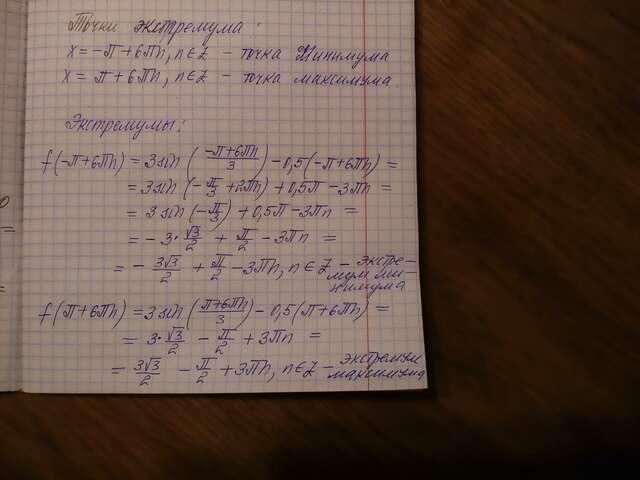 Точки экстремума:
x = -π + 6πn, n ∈ Z - точка минимума
x = π + 6πn, n ∈ Z - точка максимума
Экстремумы:
f(-π + 6πn) = 3 sin((-π + 6πn)/3) - 0,5(-π + 6πn) =
= 3 sin(-π/3 + 2πn) + 0,5π - 3πn =
= 3 sin(-π/3) + 0,5π - 3πn =
= -3·√3/2 + π/2 - 3πn =
= -3√3/2 + π/2 - 3πn, n ∈ Z - экстре-
мум ми-
нимума
f(π + 6πn) = 3 sin((π + 6πn)/3) - 0,5(π + 6πn) =
= 3·√3/2 - π/2 + 3πn =
= 3√3/2 - π/2 + 3πn, n ∈ Z - экстремум
максимума